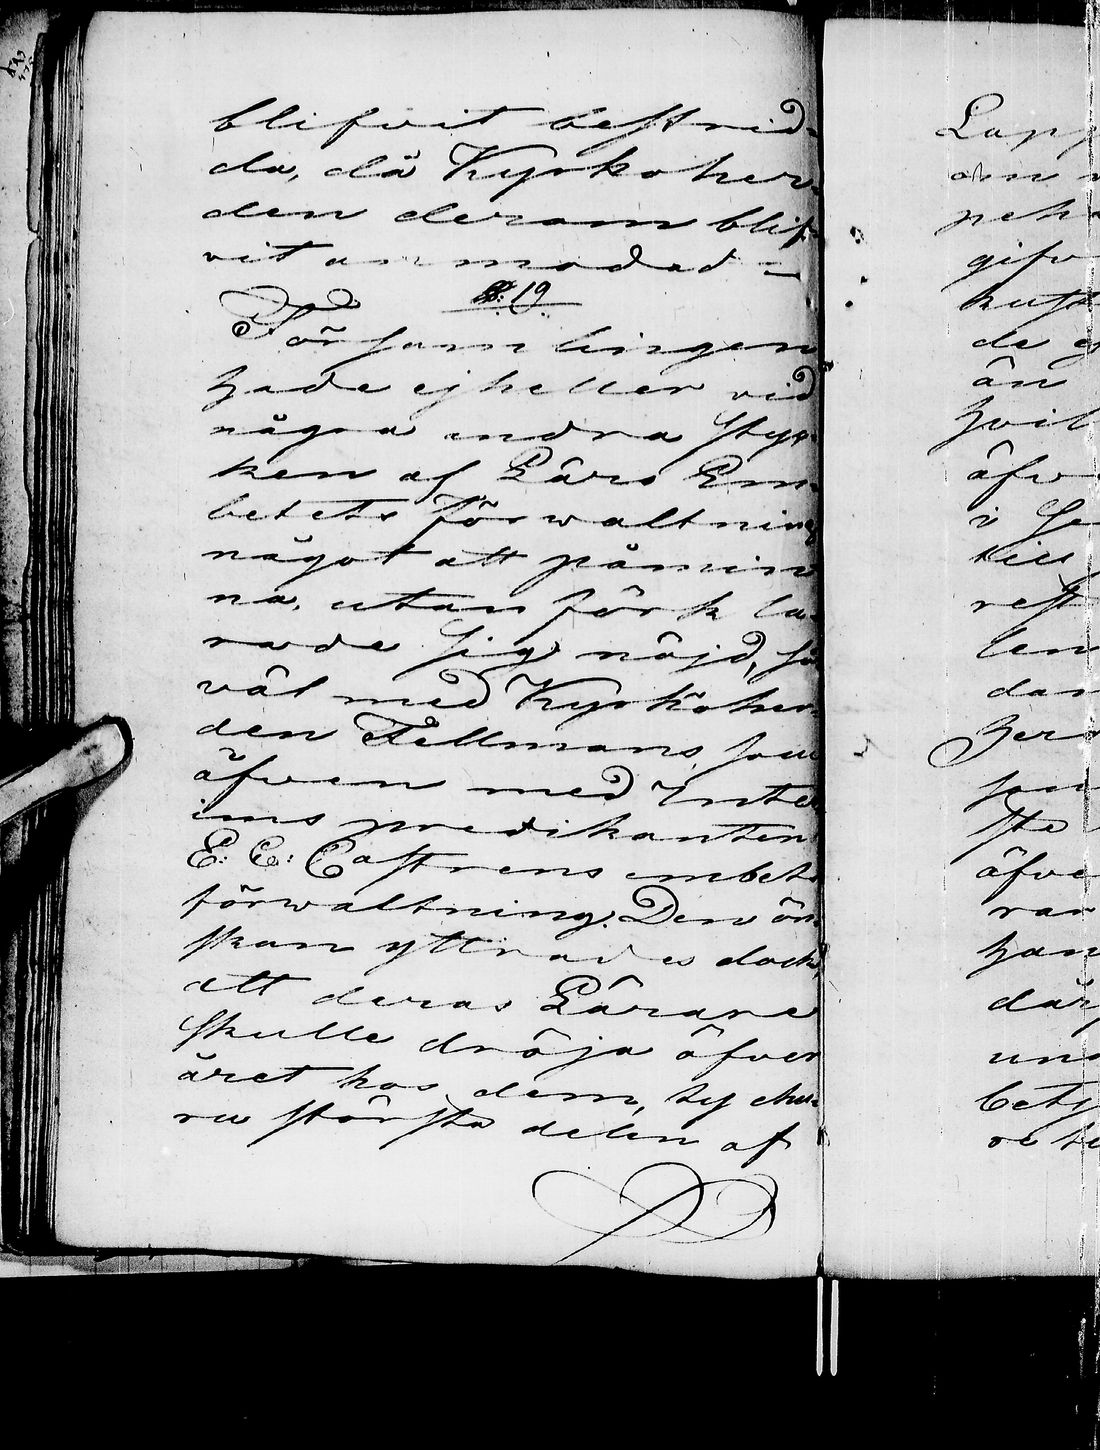 blifvit bestrid-
da, då Kyrkoher-
den derom blif-
vit anmodad –
§: 19
Församlingen
hade ej heller vid
några andra styc-
ken af Läro Em-
betets förwaltning
något att påmin
na, utan förkla-
rade sig nöjd, så
väl med Kyrkoher-
den Fellmans, som
äfven med Inte
ims predikanten
E: E: Castrens embets
förwaltning. Den ön-
skan yttrades dock
att deras Lärare
skulle dröja öfver
året hos dem, ty ehu-
ru största delen af
Lapp
om
peh
gifv
kust
de
än
hvil
äfv
i
till
rest
len
dar
her
som
sta
äfve
rar
han
där
und
bets